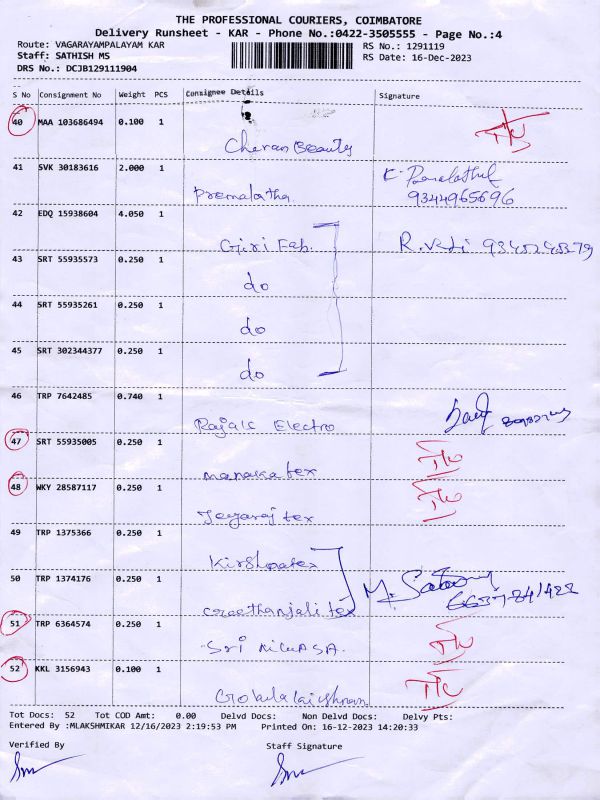 THE PROFESSIONAL COURIERS, COIMBATORE
Delivery Runsheet - KAR - Phone No.:0422-3505555 - Page No.:4
Route: VAGARAYAMPALAYAM KAR RS No.: 1291119
Staff: SATHISH MS RS Date: 16-Dec-2023
DRS No.: DCJB129111904
S No Consignment No Weight PCS Consignee Details Signature
40 MAA 103686494 0.100 1
Cheran Beauty
41 SVK 30183616 2.000 1
Premalatha 9344965696
42 EDQ 15938604 4.050 1
Giri Fab. R.
43 SRT 55935573 0.250 1
do
44 SRT 55935261 0.250 1
do
45 SRT 302344377 0.250 1
do
46 TRP 7642485 0.740 1
Electro
47 SRT 55935005 0.250 1
tex
48 WKY 28587117 0.250 1
Jeyaraj tex
49 TRP 1375366 0.250 1
50 TRP 1374176 0.250 1
tex
51 TRP 6364574 0.250 1
Sri
52 KKL 3156943 0.100 1
Tot Docs: 52 Tot COD Amt: 0.00 Delvd Docs: Non Delvd Docs: Delvy Pts:
Entered By :MLAKSHMIKAR 12/16/2023 2:19:53 PM Printed On: 16-12-2023 14:20:33
Verified By Staff Signature